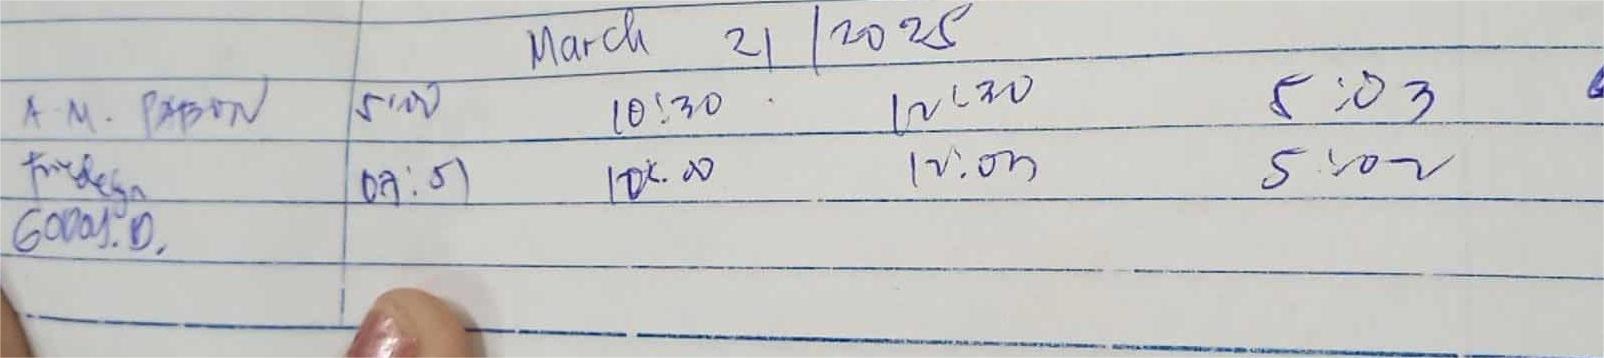 March 21/2025
A.M. PABON 5:00 10:30 12:30 5:03
07:51 10:00 12:01 5:02
GODOS.D.